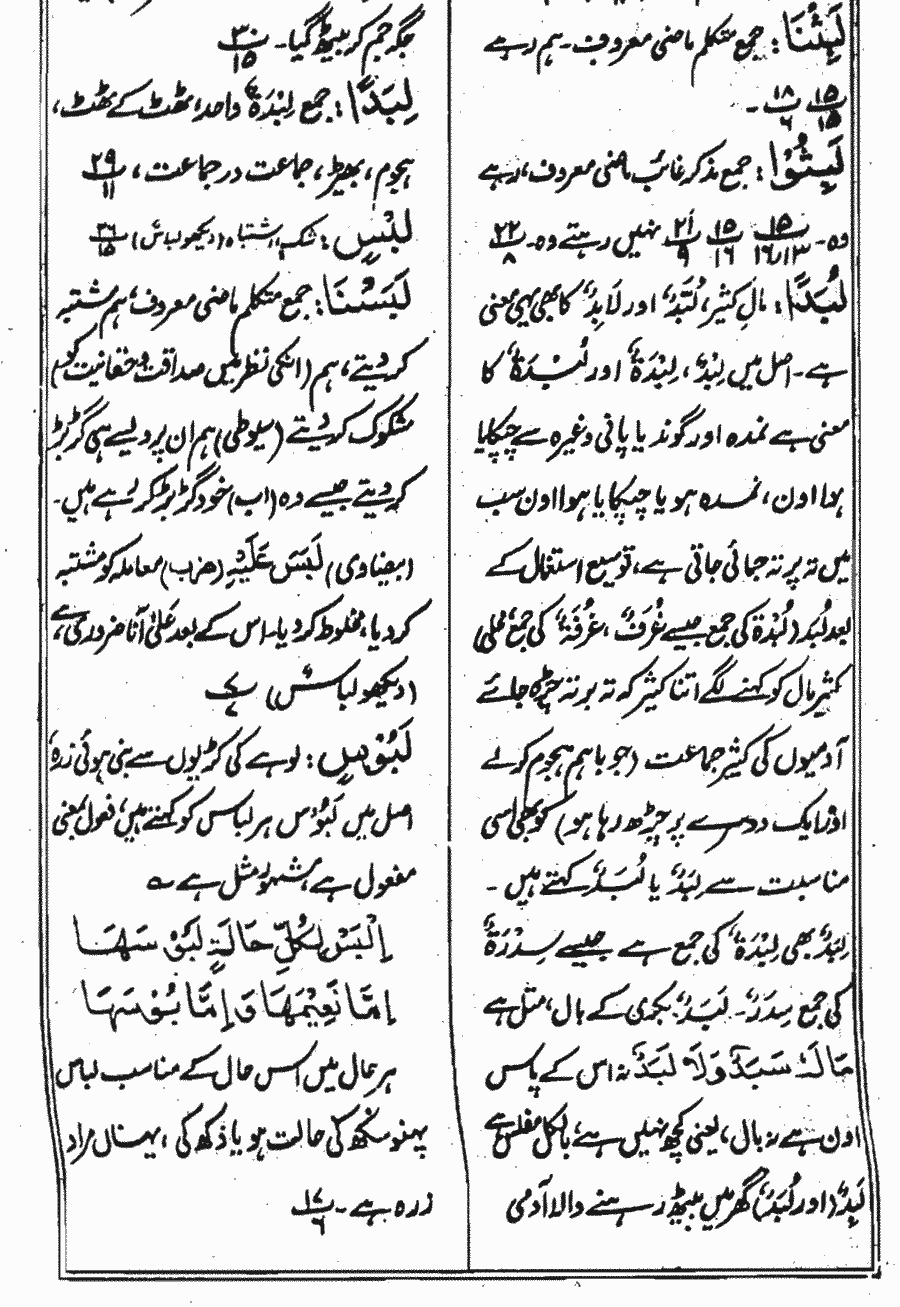 لَبِثْنَا : جمع متکلم ماضی معروف۔ ہم رہے
۱۵/۱۵ ۱۸/۶ ۔
لَبِثُوْا : جمع مذکر غائب ماضی معروف، رہے
وہ۔ ۱۵/۱۳،۱۶ ۱۵/۱۶ ۲۱/۹ نہیں رہتے وہ۔ ۲۲/۸
لُبَدًا : مالِ کثیر، لُبَّدٌ اور لَابِدٌ کا بھی یہی معنی
ہے۔ اصل میں لِبْدٌ، لِبْدَةٌ اور لُبْدَةٌ کا
معنی ہے نمدہ اور گوند یا پانی وغیرہ سے چپکایا
ہوا اون، نمدہ ہو یا چپکایا ہوا اون سب
میں تہ پر تہ جمائی جاتی ہے، توسیع استعمال کے
بعد لُبَد (لُبْدَة کی جمع جیسے غُرَفٌ، غُرْفَةٌ کی جمع محلی)
کثیر مال کو کہنے لگے اتنا کثیر کہ تہ بر تہ چڑھ جائے
آدمیوں کی کثیر جماعت (جو باہم ہجوم کرلے
اور ایک دوسرے پر چڑھ رہا ہو) کو بھی اسی
مناسبت سے لِبَدٌ یا لُبَدٌ کہتے ہیں۔
لِبَدٌ بھی لِبْدَةٌ کی جمع ہے جیسے سِدْرَةٌ
کی جمع سِدَرٌ۔ لَبَدٌ: بکری کے بال، مثل ہے
مَا لَهٗ سَبَدٌ وَلَا لَبَدٌ نہ اس کے پاس
اون ہے نہ بال، یعنی کچھ نہیں ہے، بالکل مفلس ہے
لَبِدٌ (اور لُبَدٌ) گھر میں بیٹھ رہنے والا آدمی
جگہ جم کر بیٹھ گیا۔ ۳۰/۱۵
لِبَدًا : جمع لِبْدَةٌ واحد، ٹھٹ کے ٹھٹ،
ہجوم، بھیڑ، جماعت در جماعت، ۲۹/۱۱
لَبْسٍ : شک، اشتباہ (دیکھو لباس) ۲۶/۱۵
لَبَسْنَا : جمع متکلم ماضی معروف، ہم مشتبہ
کر دیتے، ہم (انکی نظر میں صداقت و حقانیت کو)
مشکوک کر دیتے (سیوطی) ہم ان پر ویسے ہی گڑبڑ
کر دیتے جیسے وہ (اب) خود گڑبڑ کر رہے ہیں۔
(بیضاوی) لَبَسَ عَلَیْہِ (ضرب) معاملہ کو مشتبہ
کر دیا، مخلوط کر دیا۔ اس کے بعد عَلیٰ آنا ضروری ہے،
(دیکھو لباسٌ) ۷/۷
لَبُوْسٍ : لوہے کی کڑیوں سے بنی ہوئی زرہ
اصل میں لَبُوْس ہر لباس کو کہتے ہیں، فعول بمعنی
مفعول ہے، مشہور مثل ہے ؎
اِلْبَسْ لِکُلِّ حَالَةٍ لَبُوْسَهَا
اِمَّا نَعِیْمَهَا وَ اِمَّا بُوْسَهَا
ہر حال میں اس حال کے مناسب لباس
پہنو سکھ کی حالت ہو یا دُکھ کی، یہاں مراد
زرہ ہے۔ ۱۷/۶